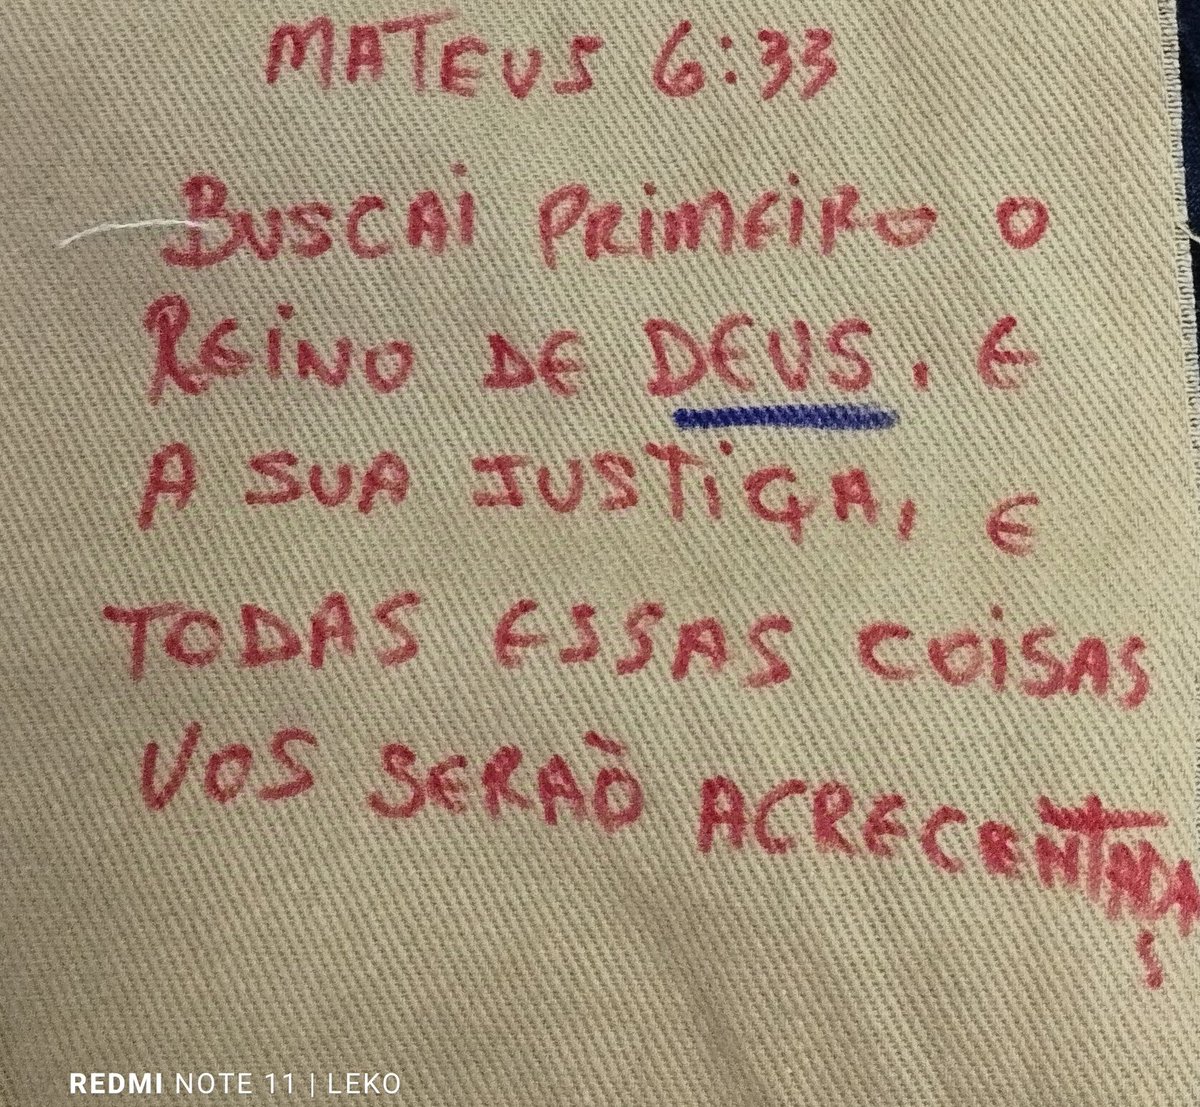 MATEUS 6:33
BUSCAI PRIMEIRO O
REINO DE DEUS, E
A SUA JUSTIÇA, E
TODAS ESSAS COISAS
VOS SERAÒ ACRECENTADA
S
REDMI NOTE 11 | LEKO